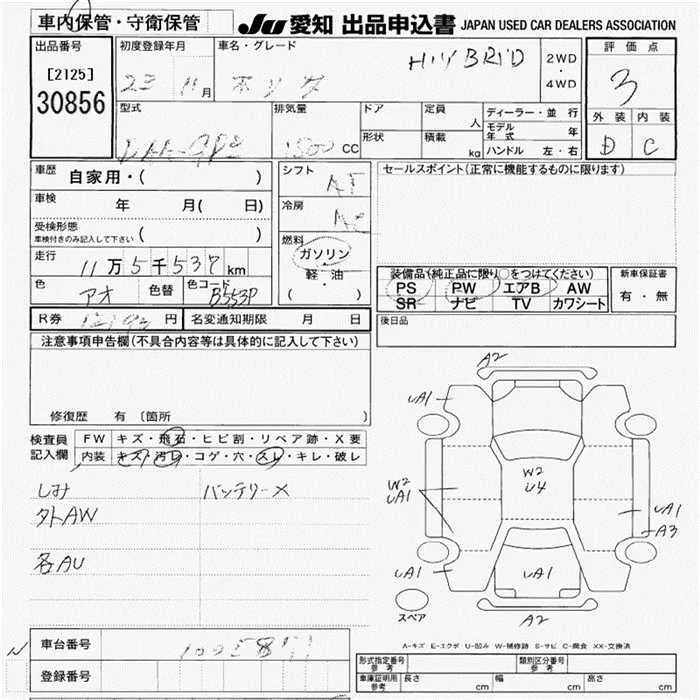 車内保管・守衛保管
JU 愛知 出品申込書 JAPAN USED CAR DEALERS ASSOCIATION
出品番号
[2125]
30856
初度登録年月
23 11月
車名・グレード
HIYBRID
2WD
・
4WD
評価点
3
外装 内装
D C
型式
排気量
1500 CC
ドア
形状
定員
人
積載
kg
ディーラー・並行
モデル年式 年
ハンドル 左・右
車歴
自家用・( )
車検
年 月( 日)
受検形態
車検付きのみ記入して下さい ( )
走行
11万5千537km
色
アオ
色替
色コード
B553P
シフト
AT
冷房
燃料
ガソリン・
軽・油
( )
セールスポイント(正常に機能するものに限ります)
装備品(純正品に限り○をつけてください)
PS PW エアB AW
SR ナビ TV カワシート
新車保証書
有・無
R券 円
名変通知期限 月 日
後日品
注意事項申告欄(不具合内容等は具体的に記入して下さい)
修復歴 有 〔箇所 〕
検査員
記入欄
FW キズ・飛石・ヒビ割・リペア跡・X要
内装 キズ・汚レ・コゲ・穴・スレ・キレ・破レ
しみ バッテリーX
タトAW
各AU
A2
UA1
UA1
W2
UA1
W2
U4
UA1
A3
UA1
UA1
スペア
A2
A-キズ E-エクボ U-凹み W-補修跡 S-サビ C-腐食 XX-交換済
車台番号
登録番号
N
形式指定番号
参考
類別区分番号
参考
車庫証明用
参考
長さ cm
幅 cm
高さ cm